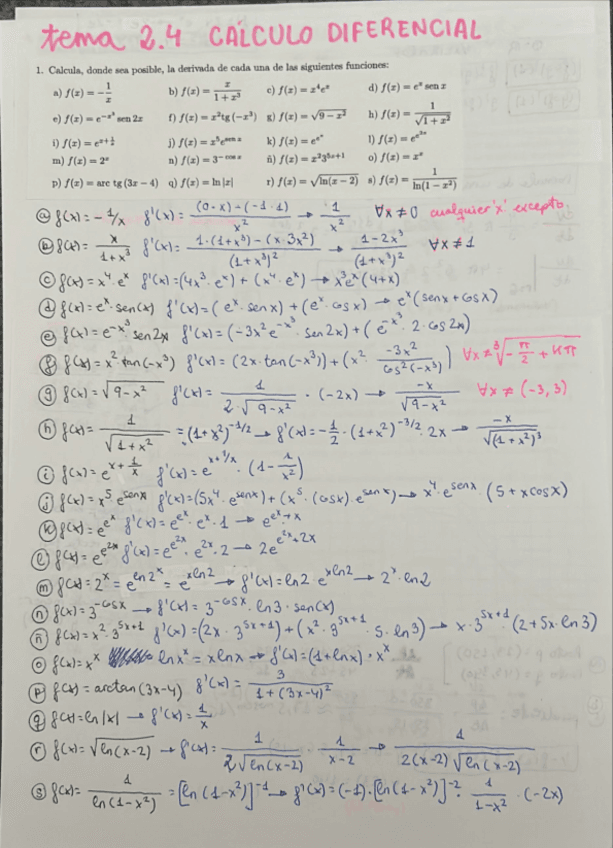 tema 2.4 CÁLCULO DIFERENCIAL
1. Calcula, donde sea posible, la derivada de cada una de las siguientes funciones:
a) f(x) = -1/x b) f(x) = x/(1+x³) c) f(x) = x⁴eˣ d) f(x) = eˣ sen x
e) f(x) = e^(-x³) sen 2x f) f(x) = x²tg(-x³) g) f(x) = √(9-x²) h) f(x) = 1/√(1+x²)
i) f(x) = e^(x+1/x) j) f(x) = x⁵e^(sen x) k) f(x) = e^(eˣ) l) f(x) = e^(e^(2x))
m) f(x) = 2ˣ n) f(x) = 3^(-cos x) ñ) f(x) = x²3^(5x+1) o) f(x) = xˣ
p) f(x) = arc tg(3x-4) q) f(x) = ln|x| r) f(x) = √(ln(x-2)) s) f(x) = 1/ln(1-x²)
ⓐ f(x) = -1/x f'(x) = ((0·x)-(-1·1))/x² → 1/x² ∀x≠0 cualquier 'x' excepto.
ⓑ f(x) = x/(1+x³) f'(x) = (1·(1+x³)-(x·3x²))/(1+x³)² → (1-2x³)/(1+x³)² ∀x≠1
ⓒ f(x) = x⁴·eˣ f'(x) = (4x³·eˣ)+(x⁴·eˣ) → x³eˣ(4+x)
ⓓ f(x) = eˣ·sen(x) f'(x) = (eˣ·senx)+(eˣ·cosx) → eˣ(senx+cosx)
ⓔ f(x) = e^(-x³) sen2x f'(x) = (-3x²e^(-x³)·sen2x)+(e^(-x³)·2·cos2x)
ⓕ f(x) = x²·tan(-x³) f'(x) = (2x·tan(-x³))+(x²·(-3x²)/cos²(-x³)) ∀x≠∛(-π/2+kπ)
ⓖ f(x) = √(9-x²) f'(x) = 1/(2·√(9-x²))·(-2x) → -x/√(9-x²) ∀x≠(-3,3)
ⓗ f(x) = 1/√(1+x²) = (1+x²)^(-1/2) → f'(x) = -1/2·(1+x²)^(-3/2)·2x → -x/√((1+x²)³)
ⓘ f(x) = e^(x+1/x) f'(x) = e^(x+1/x)·(1-1/x²)
ⓙ f(x) = x⁵·e^(senx) f'(x) = (5x⁴·e^(senx))+(x⁵·(cosx)·e^(senx)) → x⁴·e^(senx)·(5+xcosx)
ⓚ f(x) = e^(eˣ) f'(x) = e^(eˣ)·eˣ·1 → e^(eˣ+x)
ⓛ f(x) = e^(e^(2x)) f'(x) = e^(e^(2x))·e^(2x)·2 → 2e^(e^(2x)+2x)
ⓜ f(x) = 2ˣ = e^(ln2ˣ) = e^(xln2) → f'(x) = ln2·e^(xln2) → 2ˣ·ln2
ⓝ f(x) = 3^(-cosx) → f'(x) = 3^(-cosx)·ln3·sen(x)
ñ f(x) = x²·3^(5x+1) f'(x) = (2x·3^(5x+1))+(x²·3^(5x+1)·5·ln3) → x·3^(5x+1)·(2+5x·ln3)
ⓞ f(x) = xˣ lnxˣ = xlnx → f'(x) = (1+lnx)·xˣ
ⓟ f(x) = arctan(3x-4) f'(x) = 3/(1+(3x-4)²)
ⓠ f(x) = ln|x| → f'(x) = 1/x
ⓡ f(x) = √(ln(x-2)) → f'(x) = 1/(2√(ln(x-2))) 1/(x-2) → 1/(2(x-2)√(ln(x-2)))
ⓢ f(x) = 1/ln(1-x²) = [ln(1-x²)]⁻¹ → f'(x) = (-1)·[ln(1-x²)]⁻²·1/(1-x²)·(-2x)